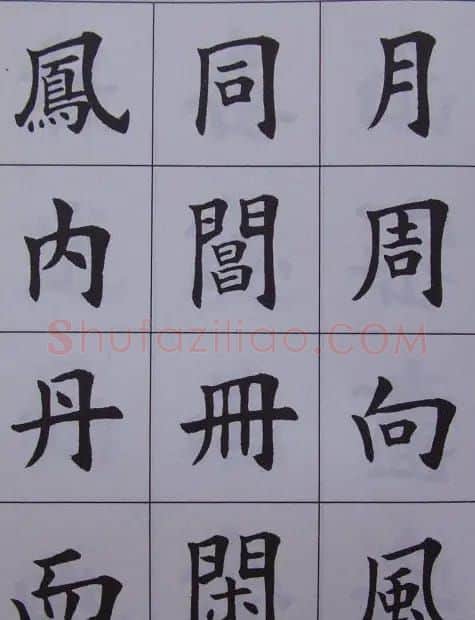 月周向風
同閶冊閑
鳳内丹而
Shufaziliao.COM